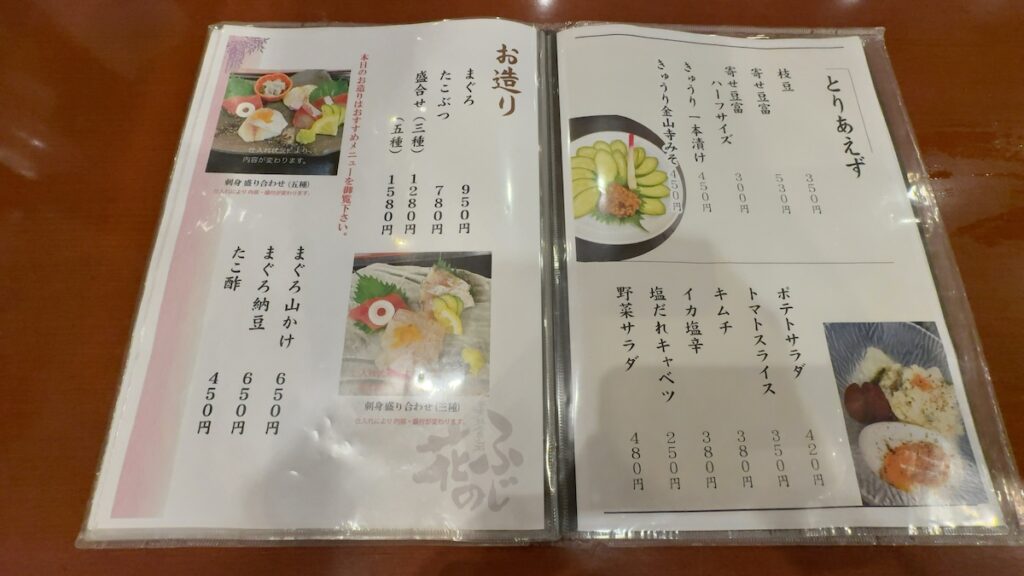 とりあえず
枝豆 350円
寄せ豆富 530円
寄せ豆富
ハーフサイズ 300円
きゅうり一本漬け 450円
きゅうり金山寺みそ 450円
ポテトサラダ 420円
トマトスライス 350円
キムチ 380円
イカ塩辛 380円
塩だれキャベツ 250円
野菜サラダ 480円
お造り
まぐろ 950円
たこぶつ 780円
盛合せ(三種) 1280円
(五種) 1580円
本日のお造りはおすすめメニューを御覧下さい。
仕入れ状況により
内容が変わります。
刺身盛り合わせ(五種)
仕入れにより内容・盛付が変わります。
まぐろ山かけ 650円
まぐろ納豆 650円
たこ酢 450円
刺身盛り合わせ(三種)
仕入れにより内容・盛付が変わります。
ふじ
花の